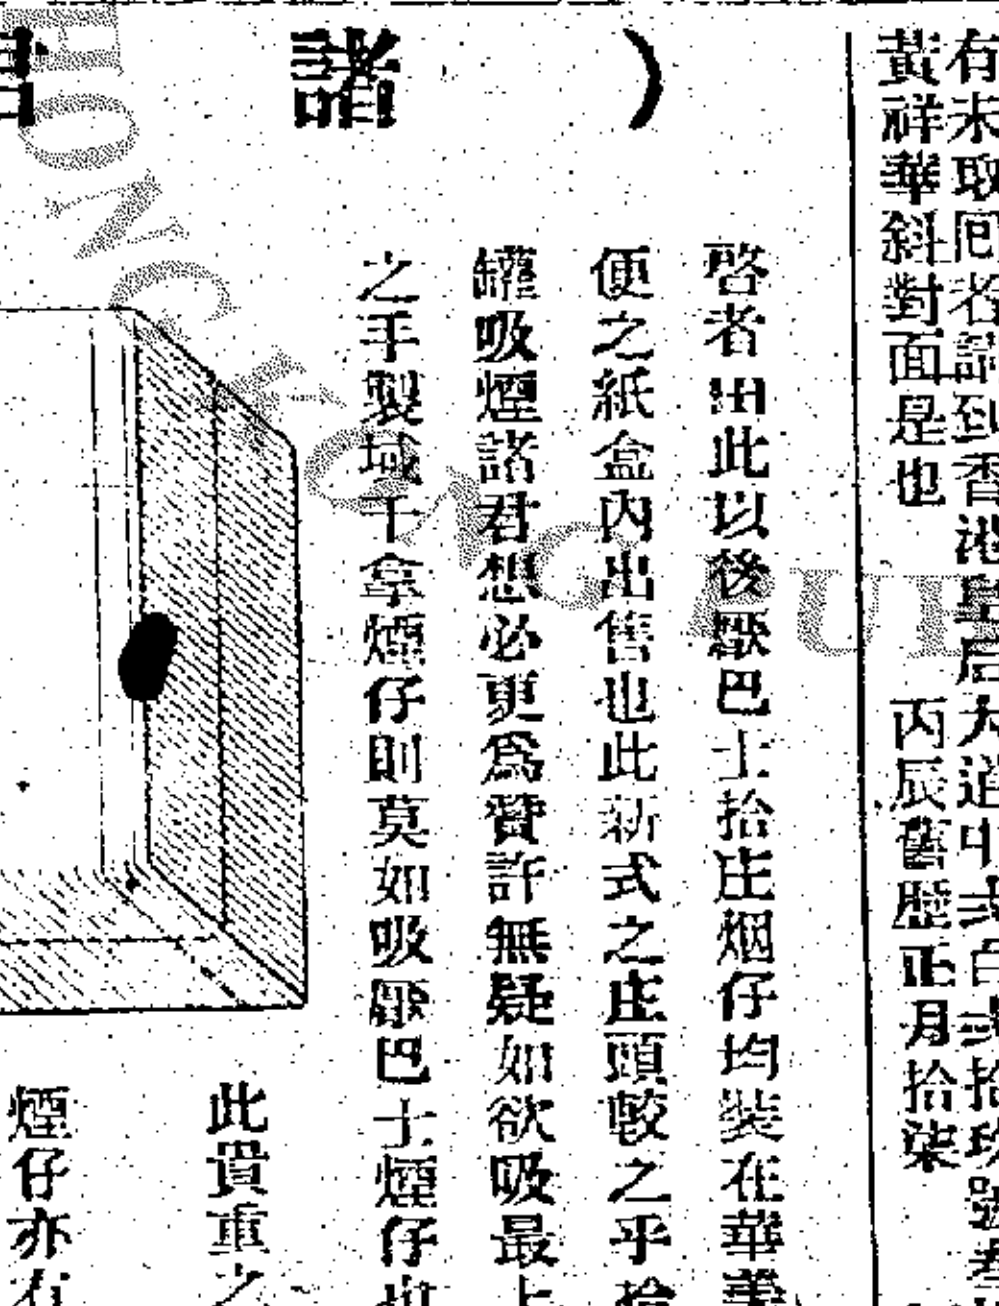 有未取囘者請到香港皇后大道中弍百弍拾玖號
黃祥華斜對面是也 丙辰舊歷正月拾柒
) 諸君
啓者由此以後厭巴士拾庄烟仔均裝在華美
便之紙盒內出售也此新式之庄頭較之乎拾
罐吸煙諸君想必更爲贊許無疑如欲吸最上
之手製域干拿煙仔則莫如吸厭巴士煙仔也
此貴重之
煙仔亦有
HONG KONG PUB